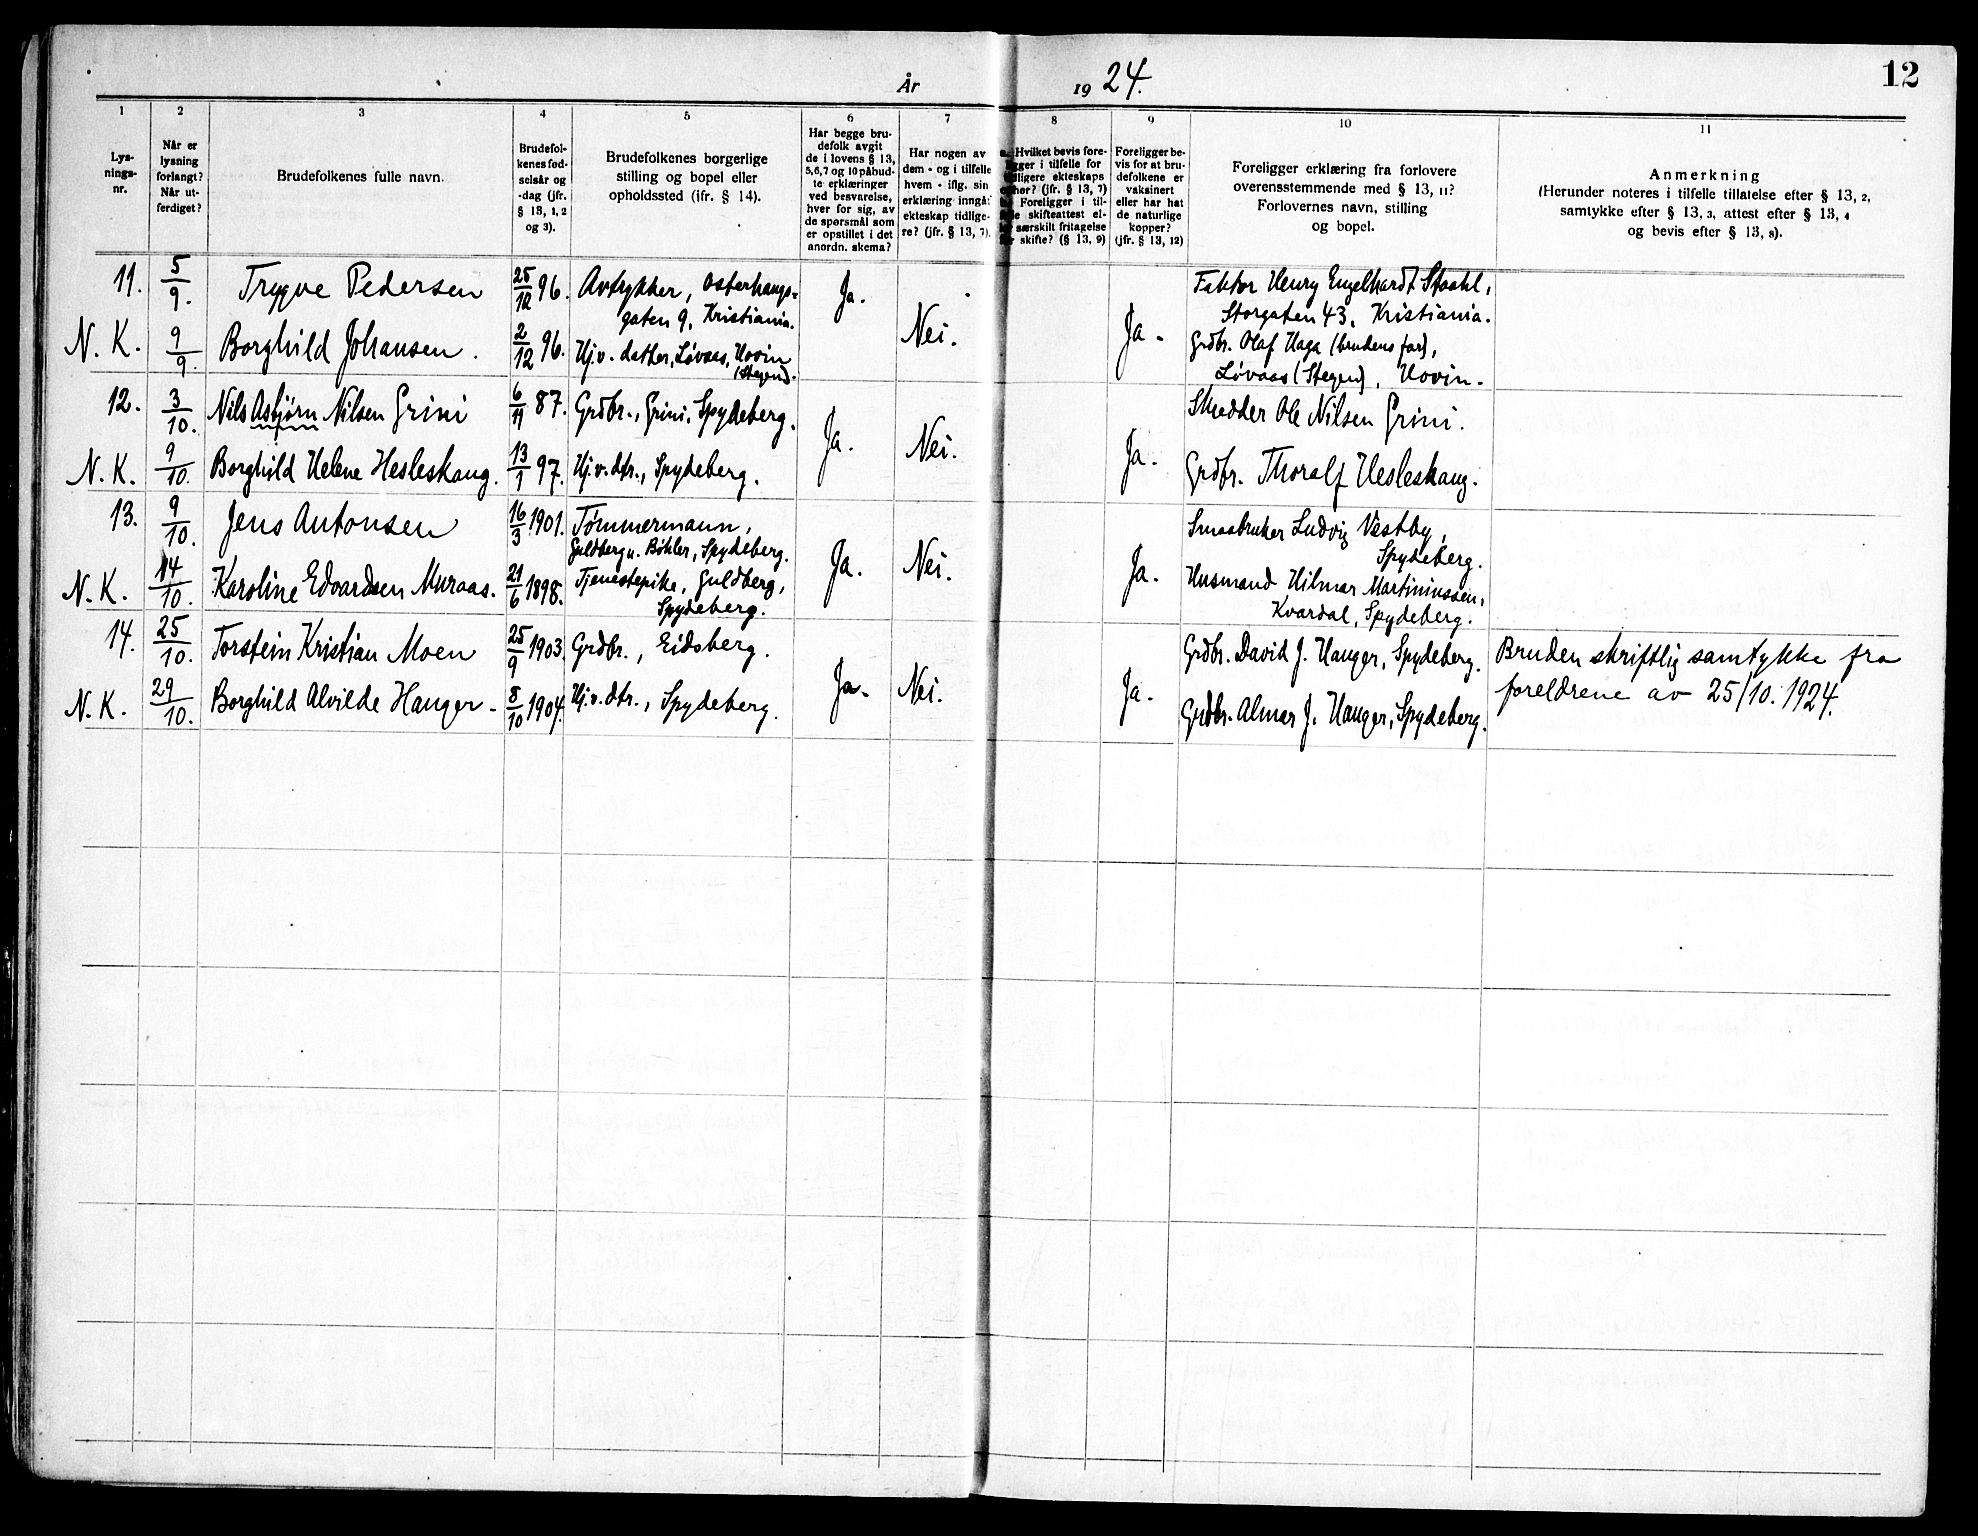 År 1924.
12
1
2
3
4
5
6
7
8
9
10
11
Lys-
nings-
nr.
Når er
lysning
forlangt?
Når ut-
ferdiget?
Brudefolkenes fulle navn.
Brudefol-
kenes fød-
selsår og
-dag (jfr.
§ 13, 1, 2
og 3).
Brudefolkenes borgerlige
stilling og bopel eller
opholdssted (ifr. § 14).
Har begge bru-
defolk avgit
de i lovens § 13,
5,6,7 og 10 påbud-
te erklæringer
ved besvarelse,
hver for sig, av
de spørsmål som
er opstillet i det
anordn. skema?
Har nogen av
dem - og i tilfelle
hvem - iflg. sin
erklæring inngåt
ekteskap tidlige-
re? (jfr. § 13, 7).
Hvilket bevis fore-
i tilfelle for
ekteskaps
(jfr. § 13, 7)
Foreligger i til-
skifteattest el-
særskilt fritagelse
skifte? (§ 13, 9)
Foreligger be-
vis for at bru-
defolkene er
vaksinert
eller har hat
de naturlige
kopper?
(jfr. § 13, 12)
Foreligger erklæring fra forlovere
overensstemmende med § 13, 11?
Forlovernes navn, stilling
og bopel.
Anmerkning
(Herunder noteres i tilfelle tillatelse efter § 13, 2,
samtykke efter § 13, 3, attest efter § 13, 4
og bevis efter § 13, 8).
11. 5/9. Trygve Pedersen 25/12 96. Avtrykker, Osterhaugs-
gaten 9, Kristiania.
Ja.
Faktor Henry Engelhardt Staahl,
Storgaten 43, Kristiania.
N. K. 9/9. Borghild Johansen. 2/12 96. Hj.v. datter, Løvaas, Hovin
(Stegen).
Nei. Ja.
Grdbr. Olaf Haga (brudens far),
Løvaas (Stegen), Hovin.
12. 3/10. Nils Asbjørn Nilsen Grini 6/11 87. Grdbr., Grini, Spydeberg.
Ja. Nei. Ja.
Skredder Ole Nilsen Grini.
N. K. 9/10. Borghild Helene Hesleskaug. 13/1 97. Hj.v. dtr., Spydeberg.
Grdbr. Thoralf Hesleskaug.
13. 9/10. Jens Antonsen 16/3 1901. Tømmermann,
Guldberg u. Bøhler, Spydeberg.
Ja. Nei. Ja.
Smaabruker Ludvig Vestby,
Spydeberg.
N. K. 14/10. Karoline Edvardsen Muraas. 21/6 1898. Tjenestepike, Guldberg,
Spydeberg.
Husmand Hilmar Martiniussen,
Kvardal, Spydeberg.
14. 25/10. Torstein Kristian Moen 25/9 1903. Grdbr., Eidsberg.
Ja. Nei. Ja.
Grdbr. David J. Hauger, Spydeberg.
Bruden skriftlig samtykke fra
foreldrene av 25/10. 1924.
N. K. 29/10. Borghild Alvilde Hauger. 8/10 1904. Hj.v. dtr., Spydeberg.
Grdbr. Almar J. Hauger, Spydeberg.